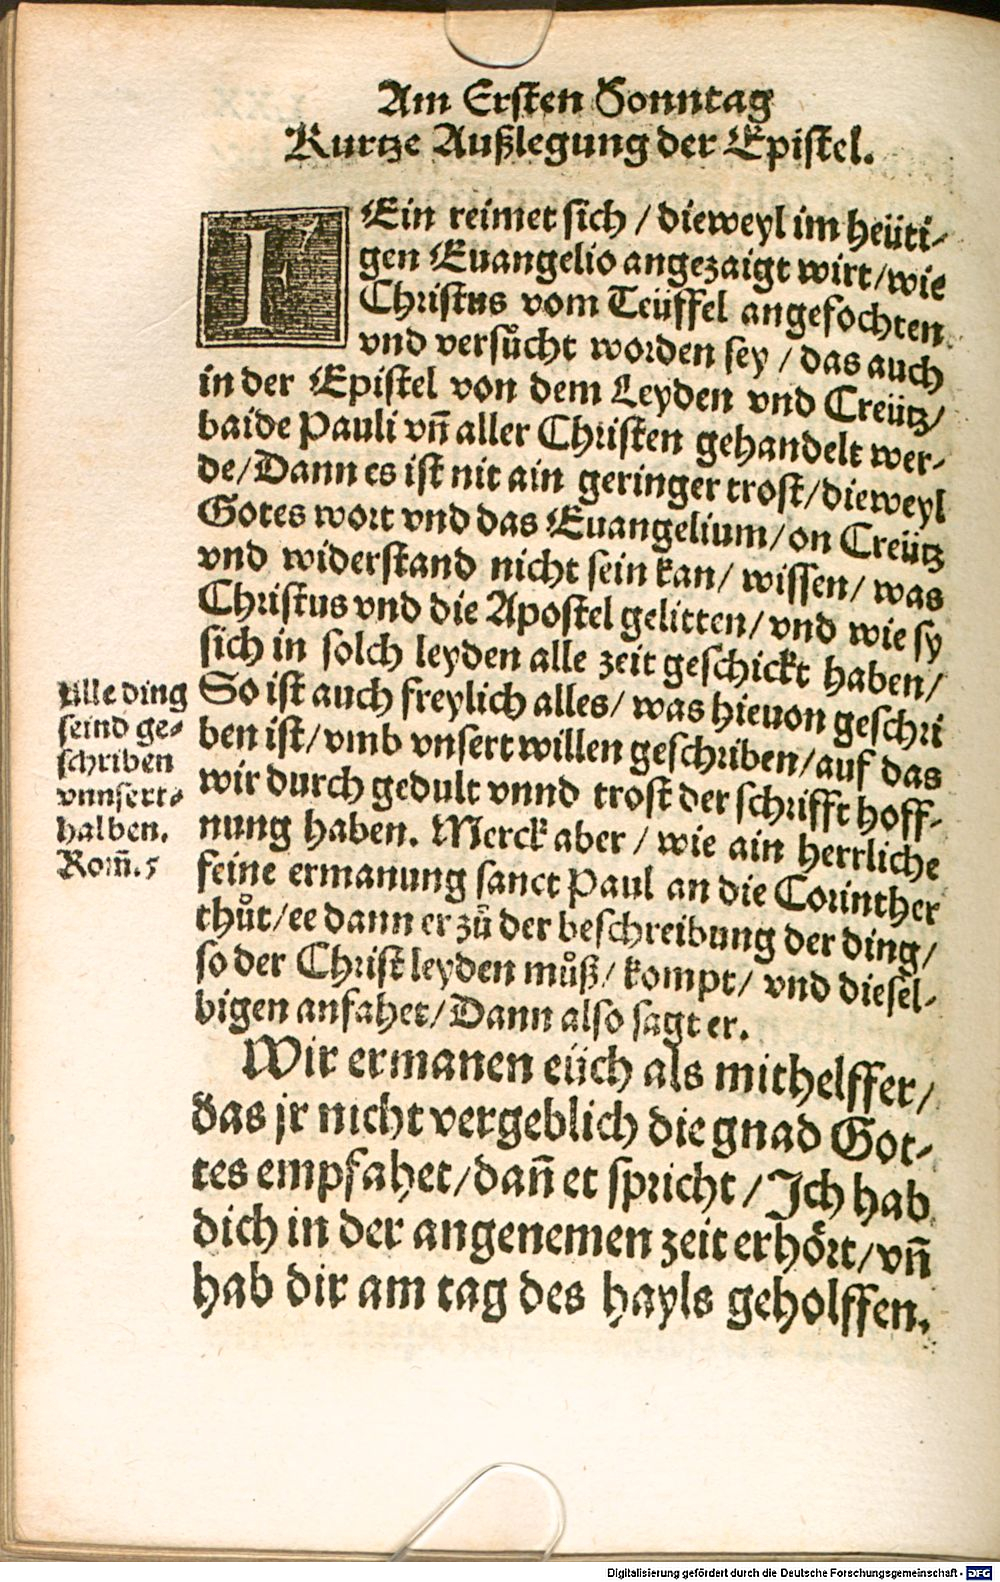 Am Ersten Sonntag
Kurtze Außlegung der Epistel.
FEin reimet sich / dieweyl im heüti-
gen Euangelio angezaigt wirt / wie
Christus vom Teüffel angefochten
vnd versůcht worden sey / das auch
in der Epistel von dem Leyden vnd Creütz /
baide Pauli vñ aller Christen gehandelt wer-
de / Dann es ist nit ain geringer trost / dieweyl
Gotes wort vnd das Euangelium / on Creütz
vnd widerstand nicht sein kan / wissen / was
Christus vnd die Apostel gelitten / vnd wie sy
sich in solch leyden alle zeit geschickt haben /
So ist auch freylich alles / was hieuon geschri
ben ist / vmb vnsert willen geschriben / auf das
wir durch gedult vnnd trost der schrifft hoff-
nung haben. Merck aber / wie ain herrliche
feine ermanung sanct Paul an die Corinther
thůt / ee dann er zů der beschreibung der ding /
so der Christ leyden můß / kompt / vnd diesel-
bigen anfahet / Dann also sagt er.
Alle ding
seind ge-
schriben
vnnsert-
halben.
Rom̃. 5
Wir ermanen eüch als mithelffer /
das jr nicht vergeblich die gnad Got-
tes empfahet / dañ et spricht / Ich hab
dich in der angenemen zeit erhört / vñ
hab dir am tag des hayls geholffen.
Digitalisierung gefördert durch die Deutsche Forschungsgemeinschaft - DFG